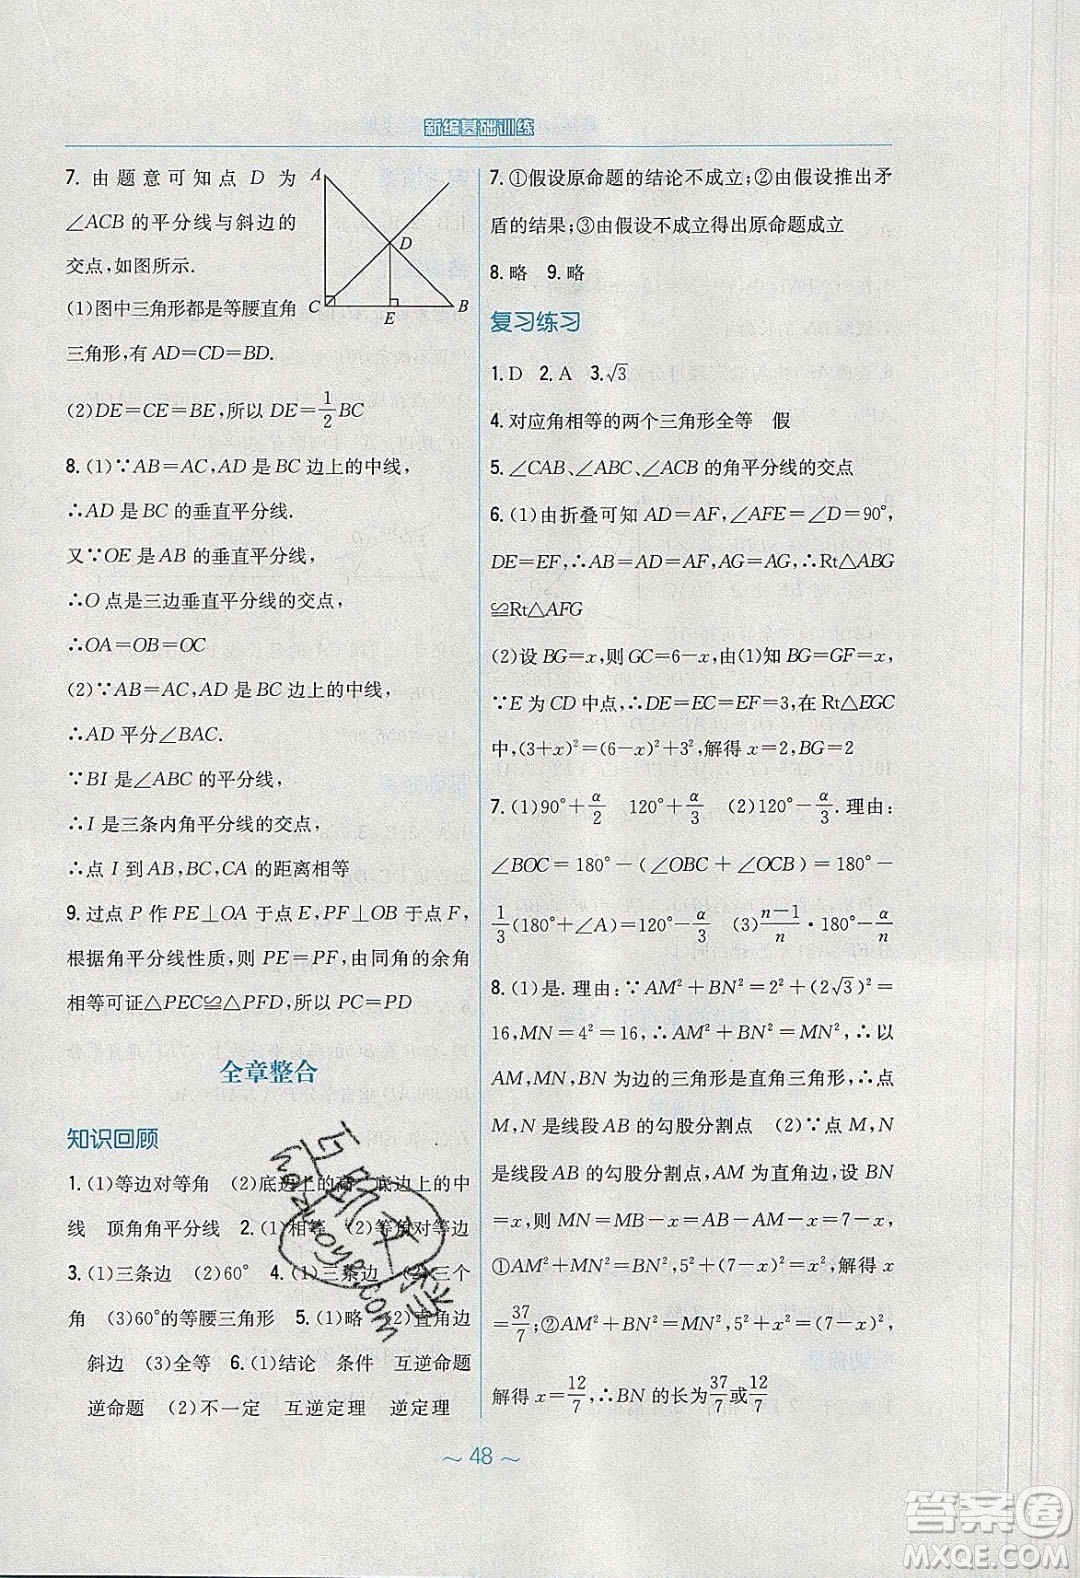 新编基础训练
7. 由题意可知点 D 为
∠ACB 的平分线与斜边的
交点,如图所示.
(1)图中三角形都是等腰直角
三角形,有 AD=CD=BD.
A
D
C
E
B
(2)DE=CE=BE,所以 DE=1/2BC
8. (1)∵AB=AC,AD 是 BC 边上的中线,
∴AD 是 BC 的垂直平分线.
又∵OE 是 AB 的垂直平分线,
∴O 点是三边垂直平分线的交点,
∴OA=OB=OC
(2)∵AB=AC,AD 是 BC 边上的中线,
∴AD 平分∠BAC.
∵BI 是∠ABC 的平分线,
∴I 是三条内角平分线的交点,
∴点 I 到 AB,BC,CA 的距离相等
9. 过点 P 作 PE⊥OA 于点 E,PF⊥OB 于点 F,
根据角平分线性质,则 PE=PF,由同角的余角
相等可证△PEC≌△PFD,所以 PC=PD
全章整合
知识回顾
1. (1)等边对等角 (2)底边上的高 底边上的中
线 顶角角平分线 2. (1)相等 (2)等角对等边
3. (1)三条边 (2)60° 4. (1)三条边 (2)三个
角 (3)60°的等腰三角形 5. (1)略 (2)直角边
斜边 (3)全等 6. (1)结论 条件 互逆命题
逆命题 (2)不一定 互逆定理 逆定理
7. ①假设原命题的结论不成立;②由假设推出矛
盾的结果;③由假设不成立得出原命题成立
8. 略 9. 略
复习练习
1. D 2. A 3. √3
4. 对应角相等的两个三角形全等 假
5. ∠CAB、∠ABC、∠ACB 的角平分线的交点
6. (1)由折叠可知 AD=AF,∠AFE=∠D=90°,
DE=EF,∴∠AFG=90°,AB=AF,AG=AG,∴Rt△ABG
≌Rt△AFG
(2)设 BG=x,则 GC=6-x,由(1)知 BG=GF=x,
∵E 为 CD 中点,∴DE=EC=EF=3,在 Rt△EGC
中,(3+x)²=(6-x)²+3²,解得 x=2,BG=2
7. (1)90°+α/2 120°+α/3 (2)120°-α/3. 理由:
∠BOC=180°-(∠OBC+∠OCB)=180°-
1/3(180°+∠A)=120°-α/3 (3)(n-1)/n·180°-α/n
8. (1)是. 理由:∵AM²+BN²=2²+(2√3)²=
16,MN=4²=16,∴AM²+BN²=MN²,∴以
AM,MN,BN 为边的三角形是直角三角形,∴点
M,N 是线段AB 的勾股分割点 (2)∵点 M,N
是线段 AB 的勾股分割点,AM 为直角边,设 BN
=x,则 MN=MB-x=AB-AM-x=7-x,
①AM²+MN²=BN²,5²+(7-x)²=x²,解得 x
=37/7;②AM²+BN²=MN²,5²+x²=(7-x)²,
解得 x=12/7,∴BN 的长为37/7或12/7
~ 48 ~
答案圈
MXQE.COM